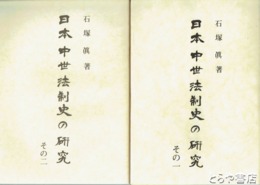 石塚眞著
日本中世法制史の研究
その一
石塚眞著
日本中世法制史の研究
その二
とらや書店